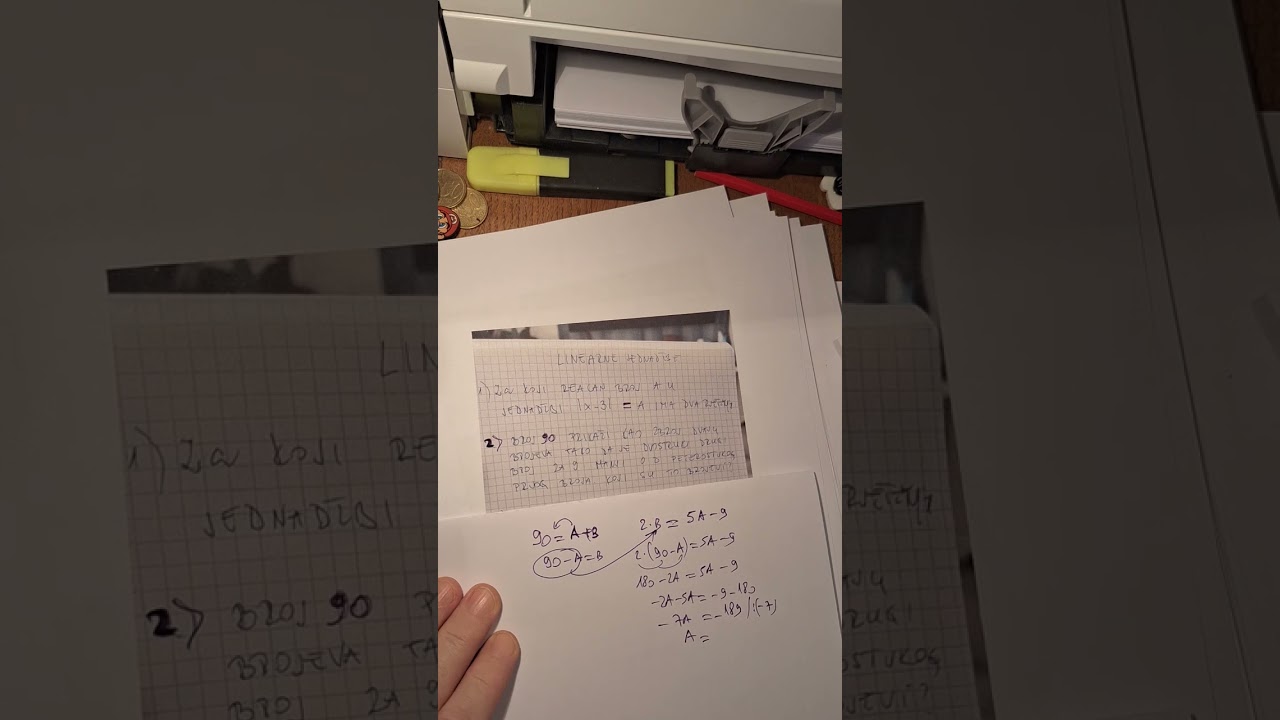 LINEARNE JEDNADŽBE
1) Za KOJI REALAN BROJ A U
JEDNADŽBI |x-3| = A IMA DVA RJEŠENJA
2) BROJ 90 PRIKAŽI KAO ZBROJ DVAJU
BROJEVA TAKO DA JE DVOSTRUKI DRUGI
BROJ ZA 9 MANJI OD PETEROSTRUKOG
PRVOG BROJA KOJI SU TO BROJEVI?
90 = A+B
90-A=B
2·B = 5A-9
2·(90-A)=5A-9
180-2A=5A-9
-2A-5A=-9-180
-7A = -189 /:(-7)
A =